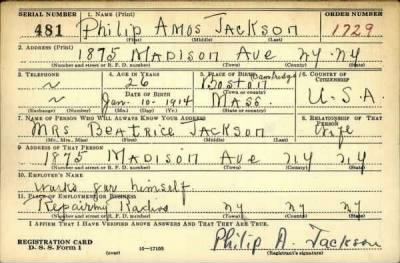 SERIAL NUMBER 1. NAME (Print) ORDER NUMBER
481 Philip Amos Jackson 1729
(First) (Middle) (Last)
2. ADDRESS (Print)
1875 Madison Ave NY. NY
(Number and street or R. F. D. number) (Town) (County) (State)
3. TELEPHONE 4. AGE IN YEARS 5. PLACE OF BIRTH 6. COUNTRY OF CITIZENSHIP
~ 26 Boston Cambridge
DATE OF BIRTH (Town or county)
~ Jan. 10. 1914 Mass. U.S.A
(Exchange) (Number) (Mo.) (Day) (Yr.) (State or country)
7. NAME OF PERSON WHO WILL ALWAYS KNOW YOUR ADDRESS 8. RELATIONSHIP OF THAT PERSON
Mrs Beatrice Jackson Wife
(Mr., Mrs., Miss) (First) (Middle) (Last)
9. ADDRESS OF THAT PERSON
1875 Madison Ave NY NY
(Number and street or R. F. D. number) (Town) (County) (State)
10. EMPLOYER'S NAME
Works for himself
11. PLACE OF EMPLOYMENT OR BUSINESS
Repairing Radios NY NY
(Number and street or R. F. D. number) (Town) (County) (State)
I AFFIRM THAT I HAVE VERIFIED ABOVE ANSWERS AND THAT THEY ARE TRUE.
REGISTRATION CARD
D. S. S. FORM 1 (over) 16—17105 Philip A. Jackson
(Registrant's signature)